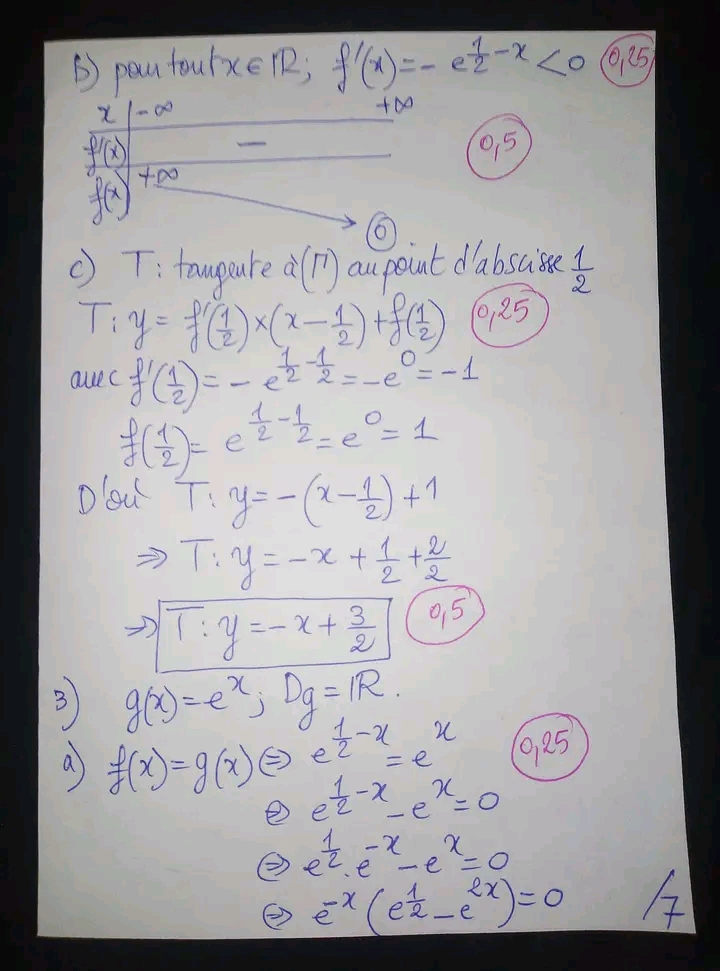 b) pour tout x ∈ ℝ; f'(x) = - e^{1/2 - x} < 0 0,25
x -∞ +∞
f'(x) - 0,5
f(x) +∞ 0
c) T: tangente à (Γ) au point d'abscisse 1/2
T: y = f'(1/2) × (x - 1/2) + f(1/2) 0,25
avec f'(1/2) = - e^{1/2 - 1/2} = -e^0 = -1
f(1/2) = e^{1/2 - 1/2} = e^0 = 1
D'où T: y = -(x - 1/2) + 1
⇒ T: y = -x + 1/2 + 2/2
⇒ T: y = -x + 3/2 0,5
3) g(x) = e^x; Dg = ℝ.
a) f(x) = g(x) ⇔ e^{1/2 - x} = e^x 0,25
⇔ e^{1/2 - x} - e^x = 0
⇔ e^{1/2} . e^{-x} - e^x = 0
⇔ e^{-x} (e^{1/2} - e^{2x}) = 0 /7